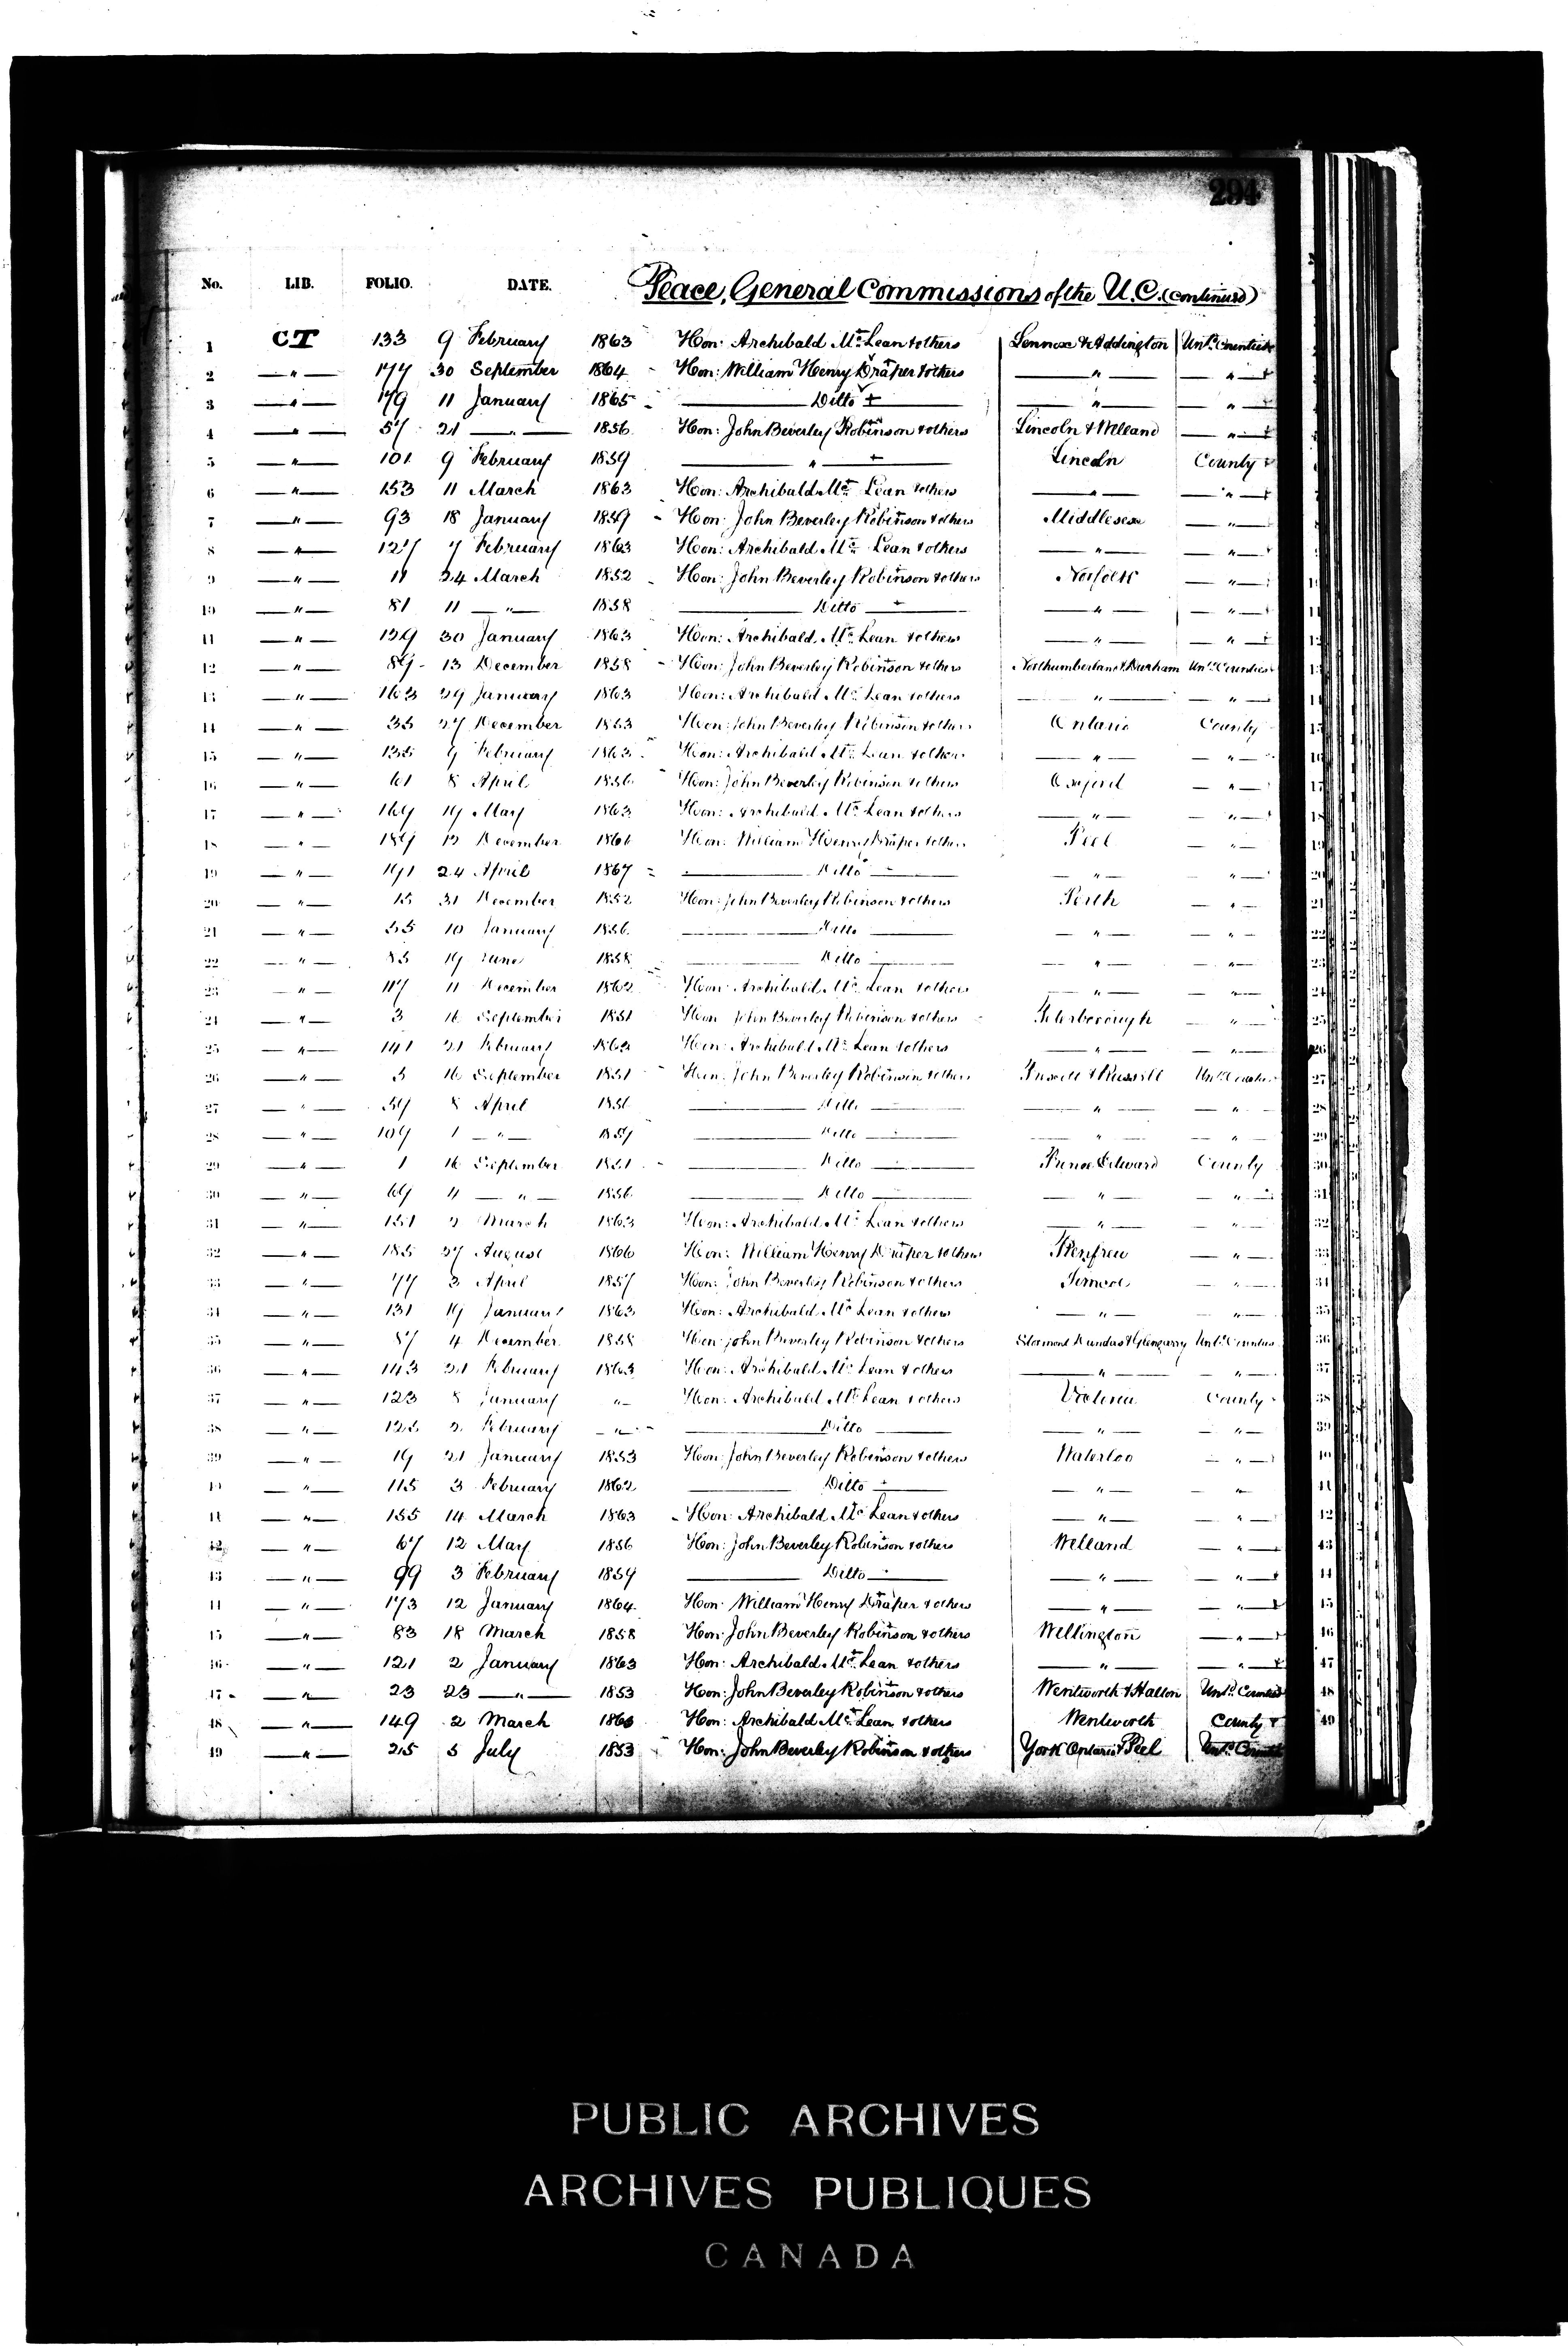 294
No. LIB. FOLIO. DATE. Peace, General Commissions of the U.C. (continued)
1 CT 133 9 February 1863 Hon: Archibald McLean & others Lennox & Addington Untd. Counties
2 — " — 177 30 September 1864 Hon: William Henry Draper & others — " — — " —
3 — " — 179 11 January 1865 Ditto — " — — " —
4 — " — 57 21 — " — 1856 Hon: John Beverley Robinson & others Lincoln & Welland — " —
5 — " — 101 9 February 1859 — " — Lincoln County
6 — " — 153 11 March 1863 Hon: Archibald Mc Lean & others — " — — " —
7 — " — 93 18 January 1859 Hon: John Beverley Robinson & others Middlesex — " —
8 — " — 127 7 February 1863 Hon: Archibald Mc Lean & others — " — — " —
9 — " — 11 24 March 1852 Hon: John Beverley Robinson & others Norfolk — " —
10 — " — 81 11 — " — 1858 Ditto — " — — " —
11 — " — 129 30 January 1863 Hon: Archibald Mc Lean & others — " — — " —
12 — " — 89 13 December 1858 Hon: John Beverley Robinson & others Northumberland & Durham Untd. Counties
13 — " — 163 29 January 1863 Hon: Archibald Mc Lean & others — " — — " —
14 — " — 35 27 December 1853 Hon: John Beverley Robinson & others Ontario County
15 — " — 135 9 February 1863 Hon: Archibald Mc Lean & others — " — — " —
16 — " — 61 8 April 1856 Hon: John Beverley Robinson & others Oxford — " —
17 — " — 169 19 May 1863 Hon: Archibald Mc Lean & others — " — — " —
18 — " — 189 12 December 1866 Hon: William Henry Draper & others Peel — " —
19 — " — 191 24 April 1867 Ditto — " — — " —
20 — " — 15 31 December 1852 Hon: John Beverley Robinson & others Perth — " —
21 — " — 55 10 January 1856 Ditto — " — — " —
22 — " — 19 June 1858 Ditto — " — — " —
23 — " — 117 11 December 1862 Hon: Archibald Mc Lean & others — " — — " —
24 — " — 3 16 September 1851 Hon John Beverley Robinson & others Peterborough — " —
25 — " — 141 21 February Hon: Archibald Mc Lean & others — " — — " —
26 — " — 5 16 September 1851 Hon: John Beverley Robinson & others Prescott & Russell Untd. Counties
27 — " — 59 8 April 1856 Ditto — " — — " —
28 — " — 109 1 — " — 1859 Ditto — " — — " —
29 — " — 1 16 September 1851 Ditto Prince Edward County
30 — " — 69 4 — " — 1856 Ditto — " — — " —
31 — " — 151 2 March 1863 Hon: Archibald Mc Lean & others — " — — " —
32 — " — 185 27 August 1866 Hon: William Henry Draper & others Renfrew — " —
33 — " — 77 3 April 1857 Hon: John Beverley Robinson & others Simcoe — " —
34 — " — 131 19 January 1863 Hon: Archibald Mc Lean & others — " — — " —
35 — " — 87 4 December 1858 Hon: John Beverley Robinson & others Stormont Dundas & Glengarry Untd. Counties
36 — " — 143 21 February 1863 Hon: Archibald Mc Lean & others — " — — " —
37 — " — 123 8 January " Hon: Archibald Mc Lean & others Victoria County
38 — " — 2 February — " — Ditto — " — — " —
39 — " — 19 21 January 1853 Hon: John Beverley Robinson & others Waterloo — " —
40 — " — 115 3 February 1862 Ditto — " — — " —
41 — " — 155 14 March 1863 Hon: Archibald Mc Lean & others — " — — " —
42 — " — 67 12 May 1856 Hon: John Beverley Robinson & others Welland — " —
43 — " — 99 3 February 1859 Ditto — " — — " —
44 — " — 173 12 January 1864 Hon: William Henry Draper & others — " — — " —
45 — " — 83 18 March 1858 Hon: John Beverley Robinson & others Wellington — " —
46 — " — 121 2 January 1863 Hon: Archibald Mc Lean & others — " — — " —
47 — " — 23 23 — " — 1853 Hon: John Beverley Robinson & others Wentworth & Halton Untd. Counties
48 — " — 149 2 March 1863 Hon: Archibald Mc Lean & others Wentworth County
49 — " — 25 5 July 1853 Hon: John Beverley Robinson & others York Ontario & Peel Untd. Counties
PUBLIC ARCHIVES
ARCHIVES PUBLIQUES
CANADA